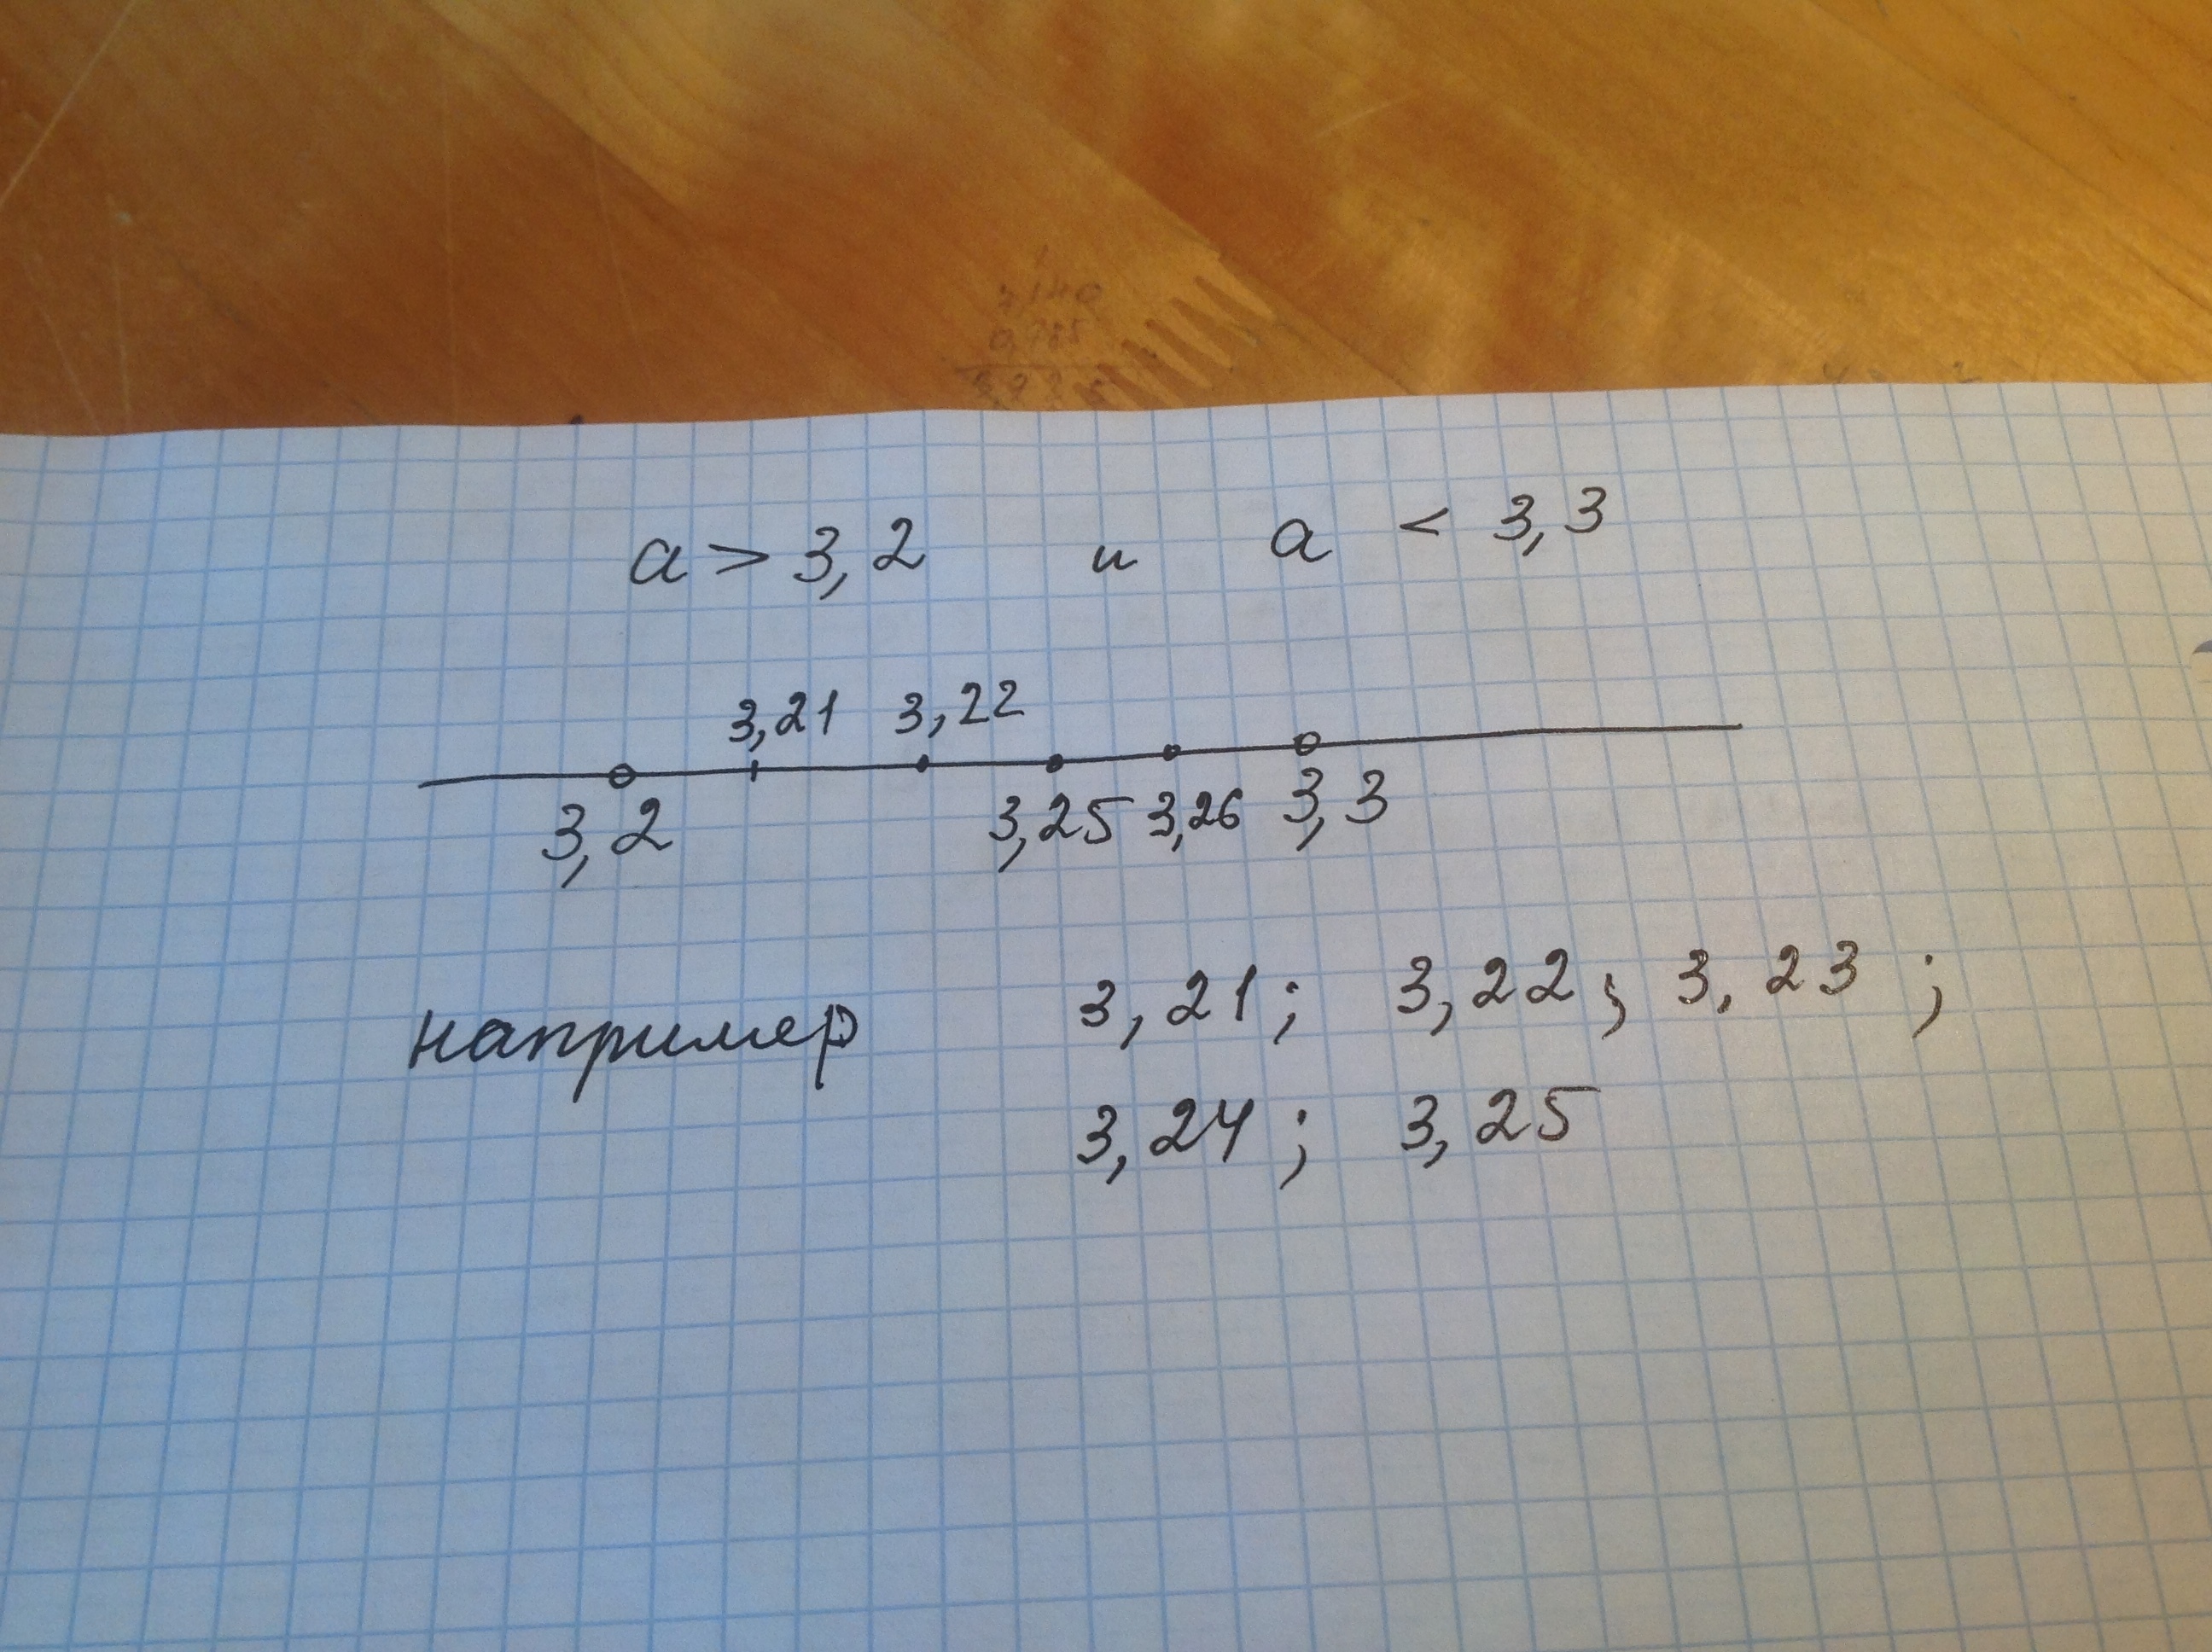 a > 3,2 и a < 3,3
3,21 3,22
3,2 3,25 3,26 3,3
например 3,21; 3,22; 3,23;
3,24; 3,25